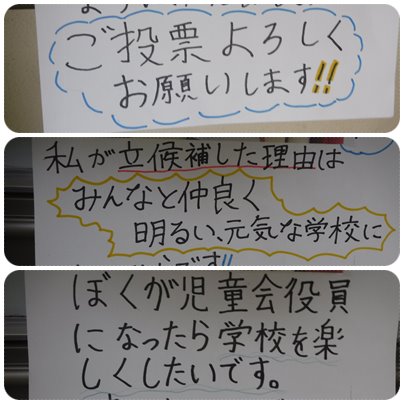 ご投票よろしく
お願いします!!
私が立候補した理由は
みんなと仲良く
明るい、元気な学校に
ぼくが児童会役員
になったら学校を楽
しくしたいです。